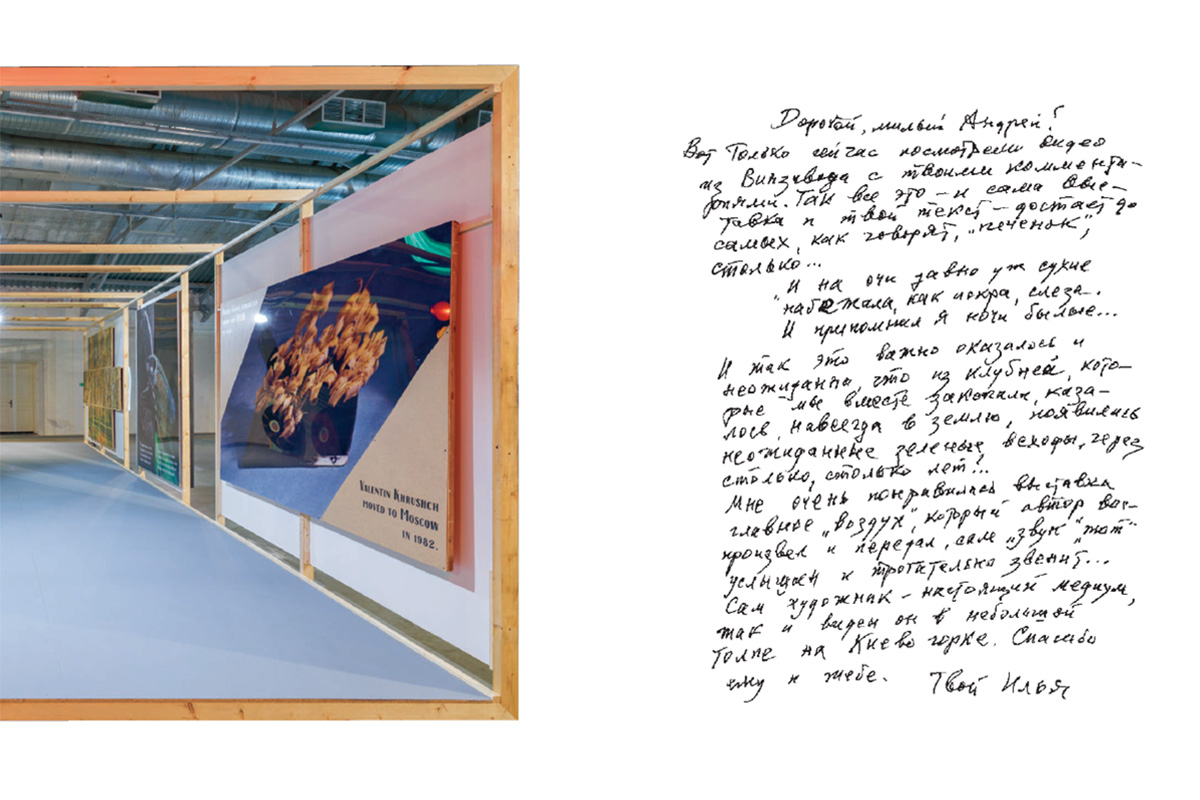 VALENTIN KHRUSHCH
MOVED TO MOSCOW
IN 1982.
Дорогой, милый Андрей!
Вот только сейчас посмотрели видео
из Винзавода с твоими коммента-
риями. Так все это – и сама выс-
тавка и твой текст – достает до
самых, как говорят, "печенок",
столько...
"И на очи давно уж сухие
набежала, как искра, слеза.
И припомнил я ночи былые...
И так это важно оказалось и
неожиданно, что из клубней, кото-
рые мы вместе закопали, каза-
лось, навсегда в землю, появились
неожиданные зеленые всходы, через
столько, столько лет!..
Мне очень понравилась выставка
главное "воздух", который автор вос-
произвел и передал, сам "звук" "тот"
услышан и трогательно звенит...
Сам художник – настоящий медиум,
так и виден он в небольшой
толпе на Киево горке. Спасибо
ему и тебе. Твой Илья